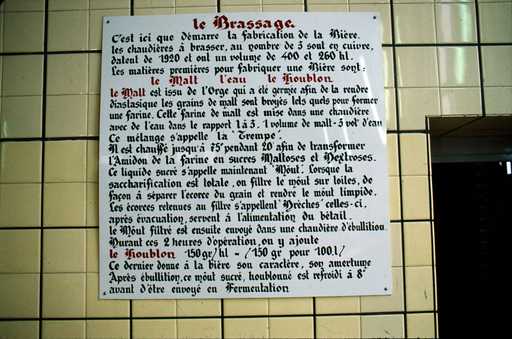 le Brassage.
C'est ici que démarre la fabrication de la Bière.
les chaudières à brasser, au nombre de 3 sont en cuivre,
datent de 1920 et ont un volume de 400 et 260 hl.
Les matières premières pour fabriquer une Bière sont:
le Malt l'eau le Houblon
le Malt est issu de l'Orge qui a été germée afin de la rendre
diastasique les grains de malt sont broyés tels quels pour former
une farine. Cette farine de malt est mise dans une chaudière
avec de l'eau dans le rapport 1 à 3. 1 volume de malt - 3 vol d'eau
Ce mélange s'appelle la "Trempe".
Il est chauffé jusqu'à 75° pendant 20' afin de transformer
l'Amidon de la farine en sucres Maltoses et Dextroses.
Ce liquide sucré s'appelle maintenant "Moût". Lorsque la
saccharification est totale, on filtre le moût sur toiles, de
façon à séparer l'écorce du grain et rendre le moût limpide.
Les écorces retenues au filtre s'appellent "Drèches" celles-ci,
après évacuation, servent à l'alimentation du bétail.
le Moût filtré est ensuite envoyé dans une chaudière d'ébullition
Durant ces 2 heures d'opération, on y ajoute
le Houblon 150gr/hl = (150 gr pour 100 l)
Ce dernier donne à la bière son caractère, son amertume
Après ébullition, ce moût sucré, houblonné est refroidi à 8°
avant d'être envoyé en Fermentation